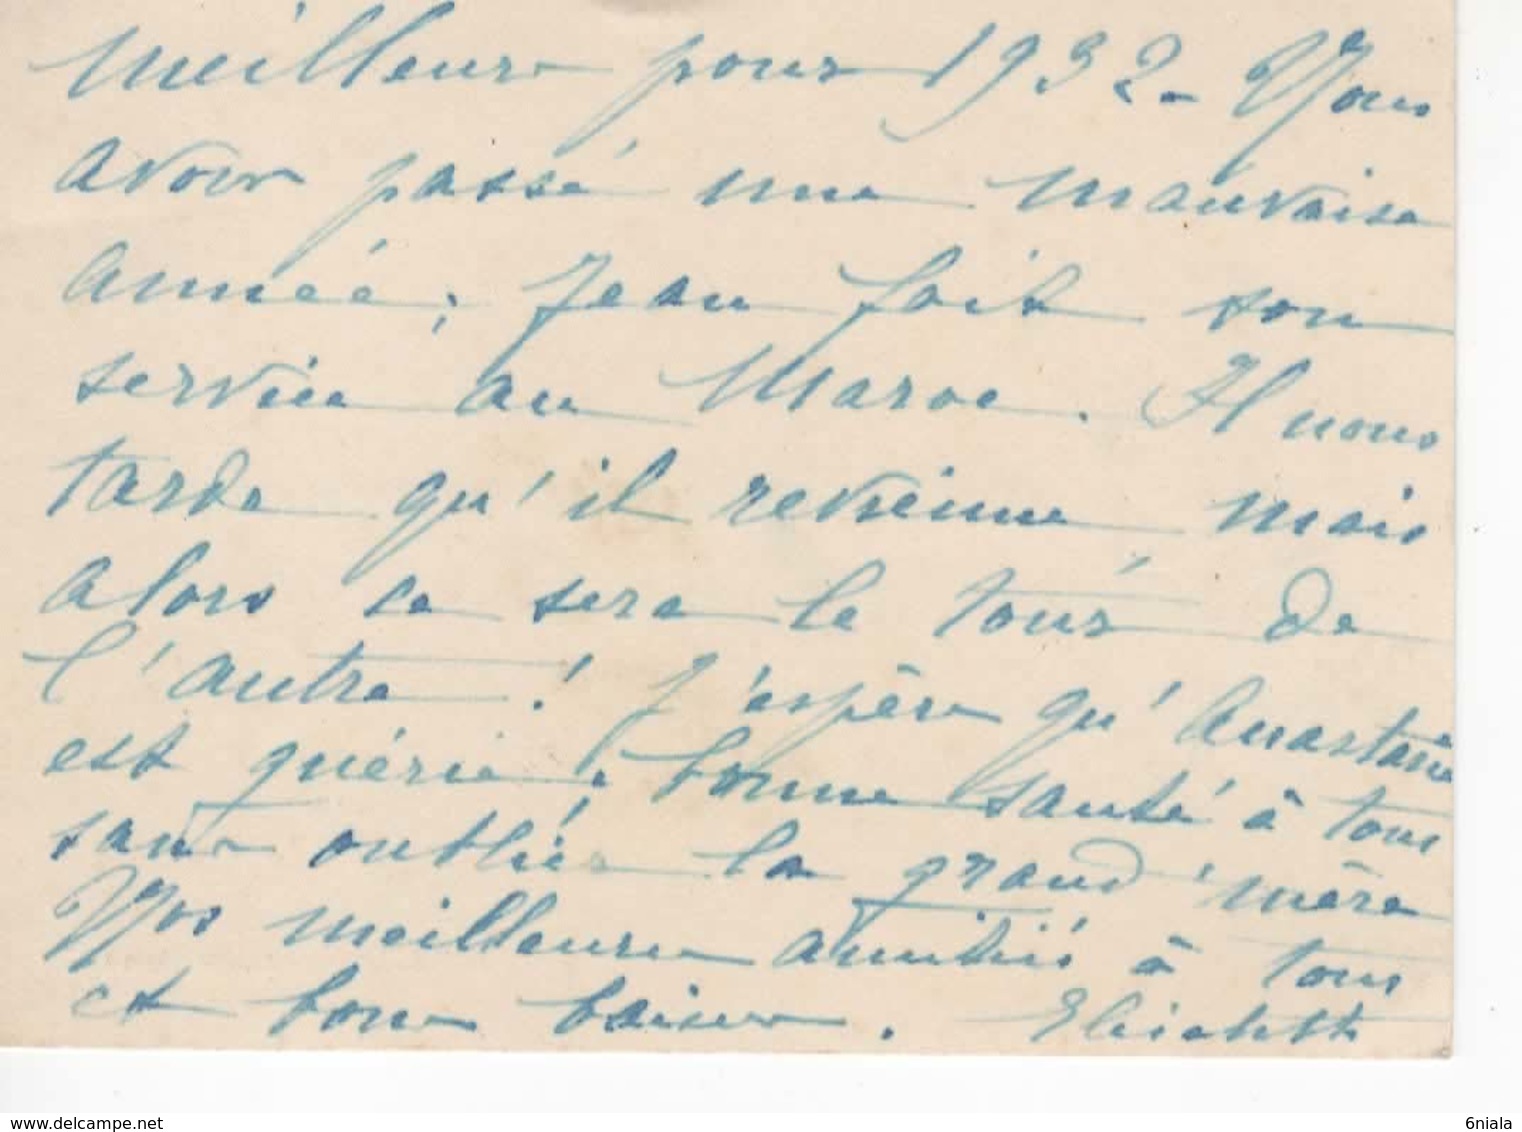 meilleur pour 1932 - Nous
avoir passé une mauvaise
année ; Jean fait son
service au Maroc. Il nous
tarde qu'il revienne mais
alors ce sera le tour de
l'autre ! J'espère qu'Anastasie
est guérie. bonne santé à tous
sans oublier la grand'mère
Nos meilleures amitiés à tous
et bons baisers. Elisabeth
www.delcampe.net
6niala